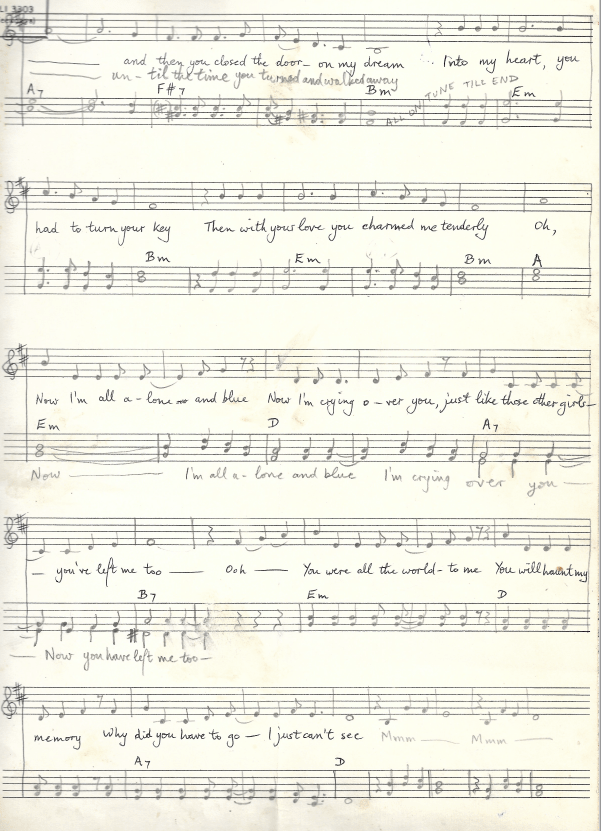 LI 3303
and then you closed the door — on my dream Into my heart, you
un - til the time you turned and walked away
A7 F#7 Bm ALL ON TUNE TILL END Em
had to turn your key Then with your love you charmed me tenderly Oh,
Bm Em Bm A
Now I'm all a - lone and blue Now I'm crying o - ver you, just like those other girls —
Em D A7
Now — I'm all a - lone and blue I'm crying over you —
— you've left me too — Ooh — You were all the world - to me You will haunt my
B7 Em D
— Now you have left me too —
memory Why did you have to go — I just can't see Mmm — Mmm —
A7 D